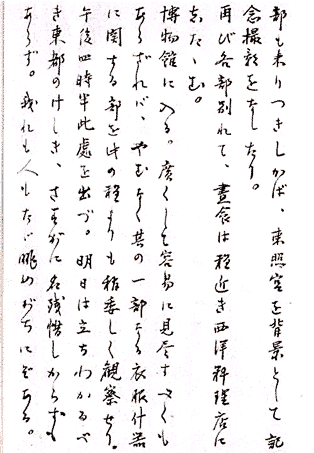 部も来りつきしかば、東照宮を背景として記
念撮影をなしたり。
再び各部別れて、昼食は程近き西洋料理店に
したゝむ。
博物館に入る。広くして容易に見尽すべくも
あらざれば、やむなく其の一部なる衣服什器
に関する部を此の種よりも稍委しく観察せり。
午後四時半此処を出づ。明日は立ちわかるべ
き東都のけしき、さすがに名残惜しからずも
あらず。我れも人もたゞ眺めがちにぞある。